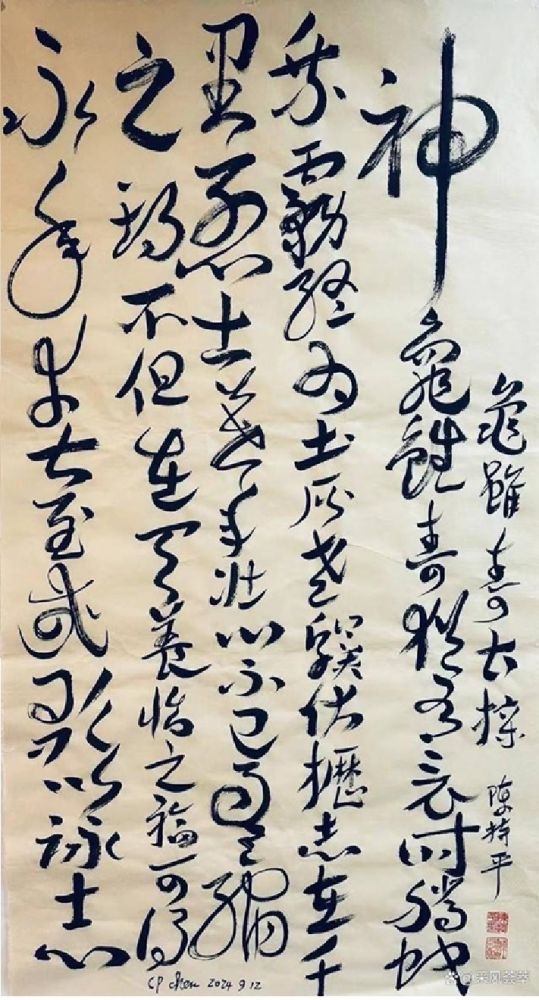 神龜雖壽猶有竟時騰蛇
乘霧終為土灰老驥伏櫪志在千
里烈士暮年壯心不已盈縮
之期不但在天養怡之福可得
永年幸甚至哉歌以詠志
龜雖壽曹操 陳持平
CP chen 2024 9.12
采风荟萃